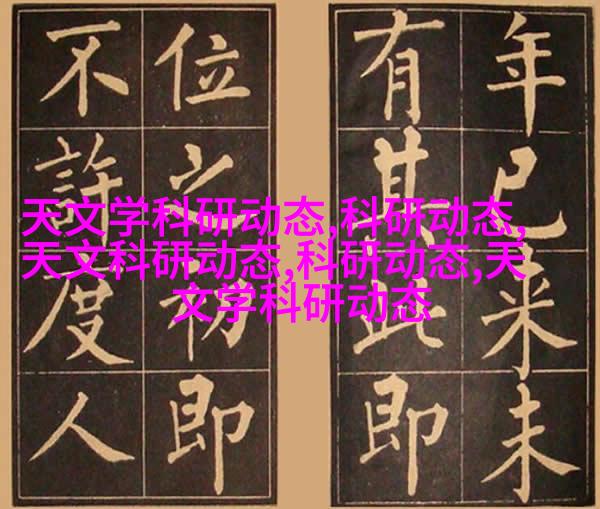 年已来未
有其此即
位之初即
不許度人
天文学科研动态,科研动态,
天文科研动态,科研动态,天
文学科研动态